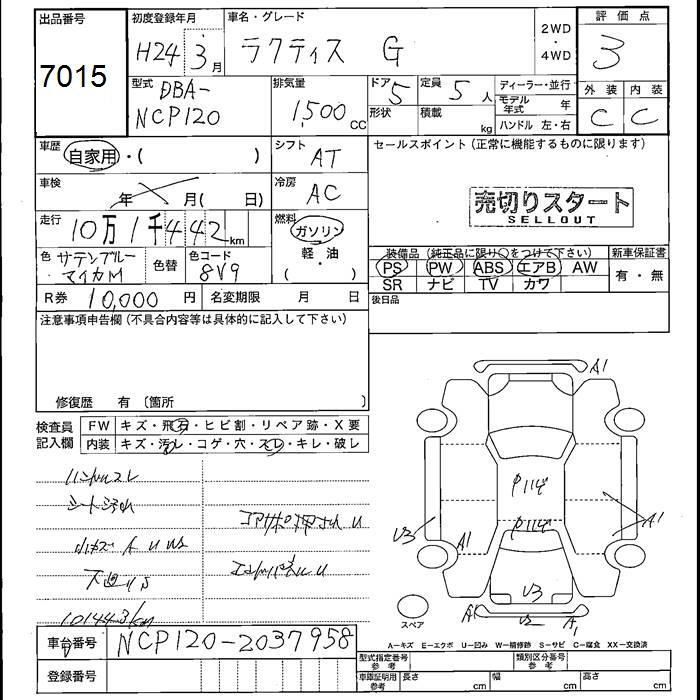 出品番号
7015
初度登録年月
H24 3月
車名・グレード
ラクティス G
2WD
・
4WD
評価点
3
外装 内装
C C
型式 DBA-
NCP120
排気量
1,500 CC
ドア 5
形状
定員 5 人
積載 kg
ディーラー・並行
モデル年式 年
ハンドル 左・右
車歴
自家用・( )
シフト
AT
車検
年 月( 日)
冷房
AC
走行
10万1千442km
燃料
ガソリン
軽・油
( )
色 サテンブルーマイカM
色替
色コード
8V9
R券 10,000 円
名変期限 月 日
セールスポイント(正常に機能するものに限ります)
売切りスタート
SELLOUT
装備品(純正品に限り○をつけて下さい)
PS PW ABS エアB AW
SR ナビ TV カワ
新車保証書
有・無
後日品
注意事項申告欄(不具合内容等は具体的に記入して下さい)
修復歴 有 〔箇所
検査員
記入欄
FW キズ・飛石・ヒビ割・リペア跡・X要
内装 キズ・汚レ・コゲ・穴・スレ・キレ・破レ
ハンドルスレ
シート汚れ
コアサポ押され U
エンドパネル U
101443km
A1
P1
P1
U3
A1
A1
U3
A1
A1
スペア
A−キズ E−エクボ U−凹み W−補修跡 S−サビ C−腐食 XX−交換済
車台番号 NCP120-2037958
登録番号
型式指定番号
参考
類別区分番号
参考
車庫証明用
参考
長さ cm
幅 cm
高さ cm